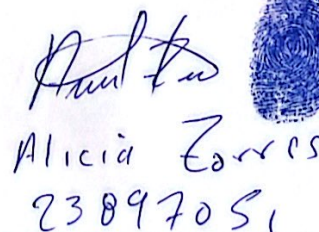 Alicia Torres
23897051